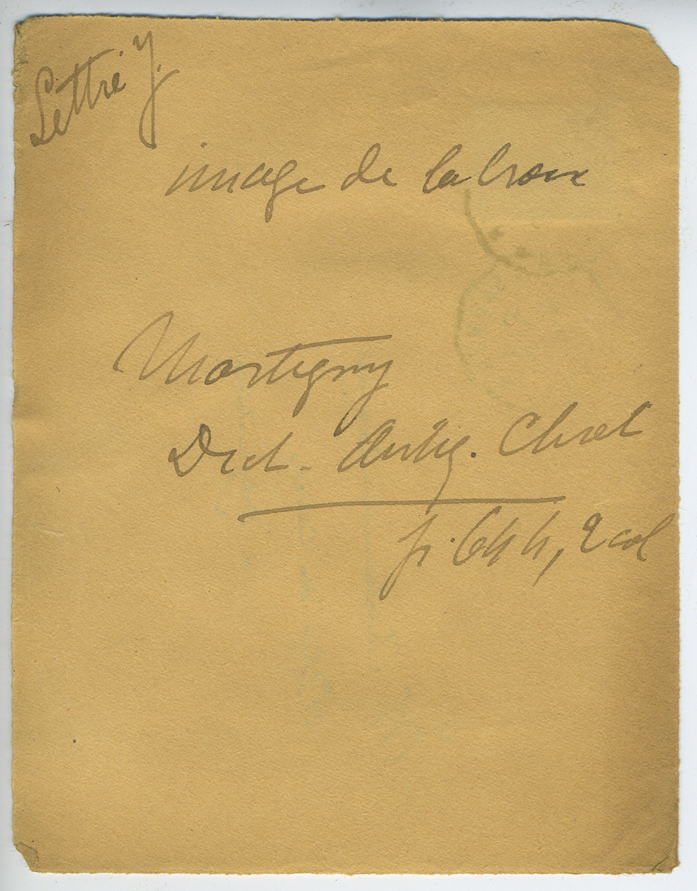 Lettre Y.
image de la Croix
Martigny
Dict. Antiq. Chret
p. 644, 2 col